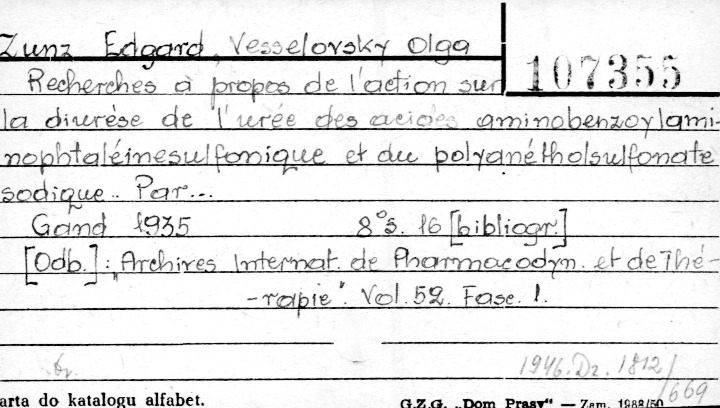 Zunz Edgard, Vesselovsky Olga
107355
Recherches à propos de l'action sur
la diurèse de l'urée des acides aminobenzoylami-
nophtaléinesulfonique et du polyanétholsulfonate
sodique.. Par...
Gand 1935 8°s. 16 [bibliogr.]
[Odb.]: „Archives Internat. de Pharmacodyn. et de Thé-
-rapie". Vol. 52. Fasc. 1.
dr.
1946. Dz. 1812/669
arta do katalogu alfabet.
G.Z.G. „Dom Prasy" — Zam. 1982/50